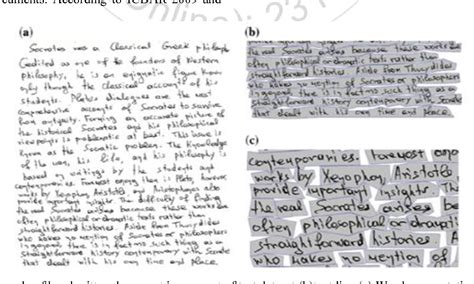 According to ICDAR 2009 and
nline): 23
(a)
Socrates was a Classical Greek philosoph
Credited as one of the founders of Western
Philosophy, he is an enigmatic figure known
only though the classical accounts of his
students. Plato's dialogues are the most
comprehensive accounts of Socrates to survive
from antiquity. Forming an accurate picture of
the historical Socrates and his philosophical
viewpoints is problematic at best. This issue is
known as the Socratic problem. The knowledge
of the man, his life, and his philosophy is
based on writings by the students and
contemporaries. Foremost among them is Plato, however
works by Xenophon, Aristotle, and Aristophanes also
provide important insights. The difficulty of finding
the real Socrates arises because these works are
often philosophical or dramatic texts rather than
straightforward histories. Aside from Thucydides
who makes no mention of Socrates or philosophers
in general there is in fact no such thing as a
straightforward history contemporary with Socrates
that dealt with his own time and place.
(b)
the real Socrates arises because these works are
often philosophical or dramatic texts rather than
straightforward histories. Aside from Thucydides
who makes no mention of Socrates or philosophers
in general there is in fact no such thing as a
straightforward history contemporary with Socrates
that dealt with his own time and place.
(c)
contemporaries. Foremost among
works by Xenophon, Aristotle
provide important insights. The
the real Socrates arises be
often philosophical or dramatic
straightforward histories. A
who makes no mention of